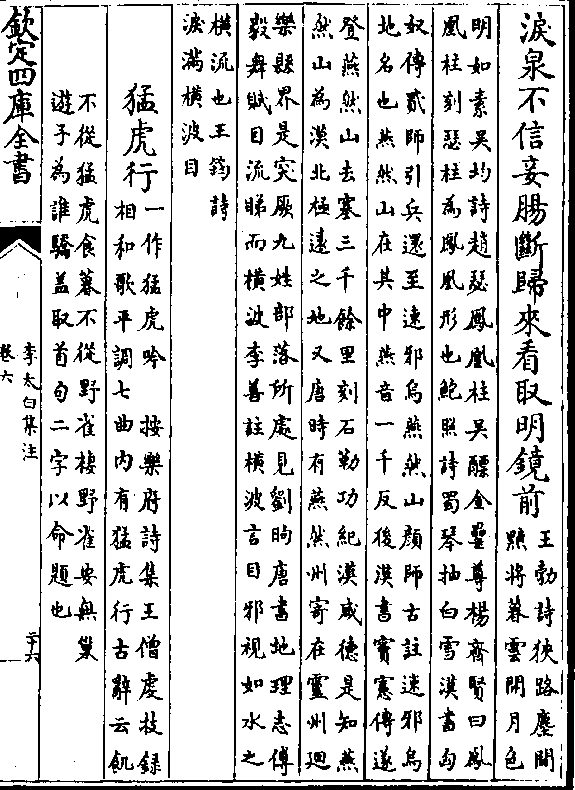 淚泉不信妾腸斷歸來看取明鏡前
王勃詩狹路塵間
黯將暮雲開月色
明如素吳均詩趙瑟鳳凰柱吳醥金罍尊楊齊賢曰鳳
凰柱刻瑟柱為鳳凰形也鮑照詩蜀琴抽白雪漢書匈
奴傳貳師引兵還至速邪烏燕然山顏師古註速邪烏
地名也燕然山在其中燕音一千反後漢書竇憲傳遂
登燕然山去塞三千餘里刻石勒功紀漢威德是知燕
然山為漠北極遠之地又唐時有燕然州寄在靈州廻
樂縣界是突厥九姓部落所處見劉昫唐書地理志傅
毅舞賦目流睇而橫波李善註橫波言目邪視如水之
橫流也王筠詩
淚滿橫波目
猛虎行
一作猛虎吟 按樂府詩集王僧虔技錄
相和歌平調七曲內有猛虎行古辭云飢
不從猛虎食暮不從野雀棲野雀安無巢
遊子為誰驕蓋取首句二字以命題也
欽定四庫全書
李太白集注
卷六
二十六